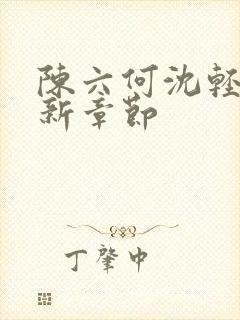 陳六何沈輕
新章節
丁肇中